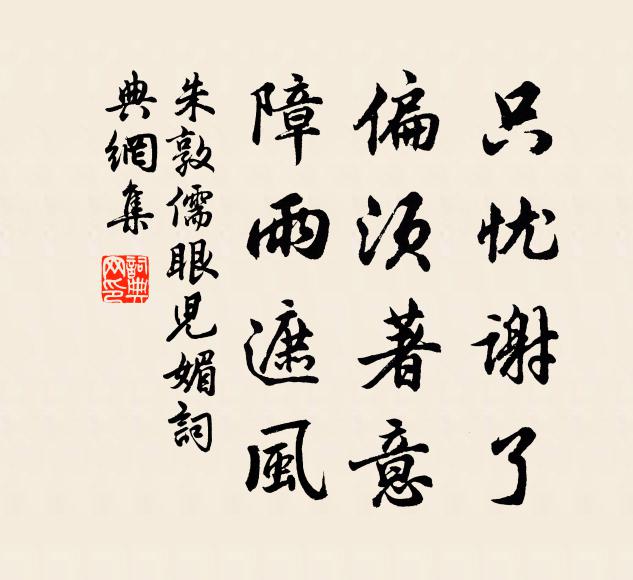 只忧谢了
偏须著意
障雨遮風
朱敦儒眼兒媚詞
典網集
詞典网印